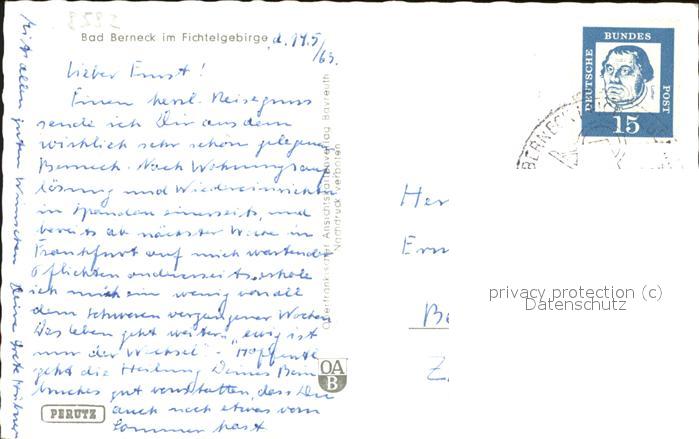 Bad Berneck im Fichtelgebirge, d. 14.5/63.
Lieber Ernst!
Einen herzl. Reisegruss
sende ich Dir aus dem
wirklich sehr schön gelegenen
Berneck. Nach Wohnungsauf
lösung und Wiedereinrichten
in Spandau einerseits, und
bereits ab nächster Woche in
Frankfurt auf mich wartende
Pflichten andererseits, erhole
ich mich ein wenig von all
dem Schweren vergangener Wochen
Das Leben geht weiter, "ewig ist
nur der Wechsel" - Hoffentl.
geht die Heilung Deines Bein
bruches gut vonstatten, dass Du
auch noch etwas vom
Sommer hast
Mit allen guten Wünschen Deine
PERUTZ
Oberfränkischer Ansichtskartenverlag Bayreuth
Nachdruck verboten
OA
B
DEUTSCHE BUNDES POST
15
BERNECK
Her
Ern
Be
Z
privacy protection (c)
Datenschutz